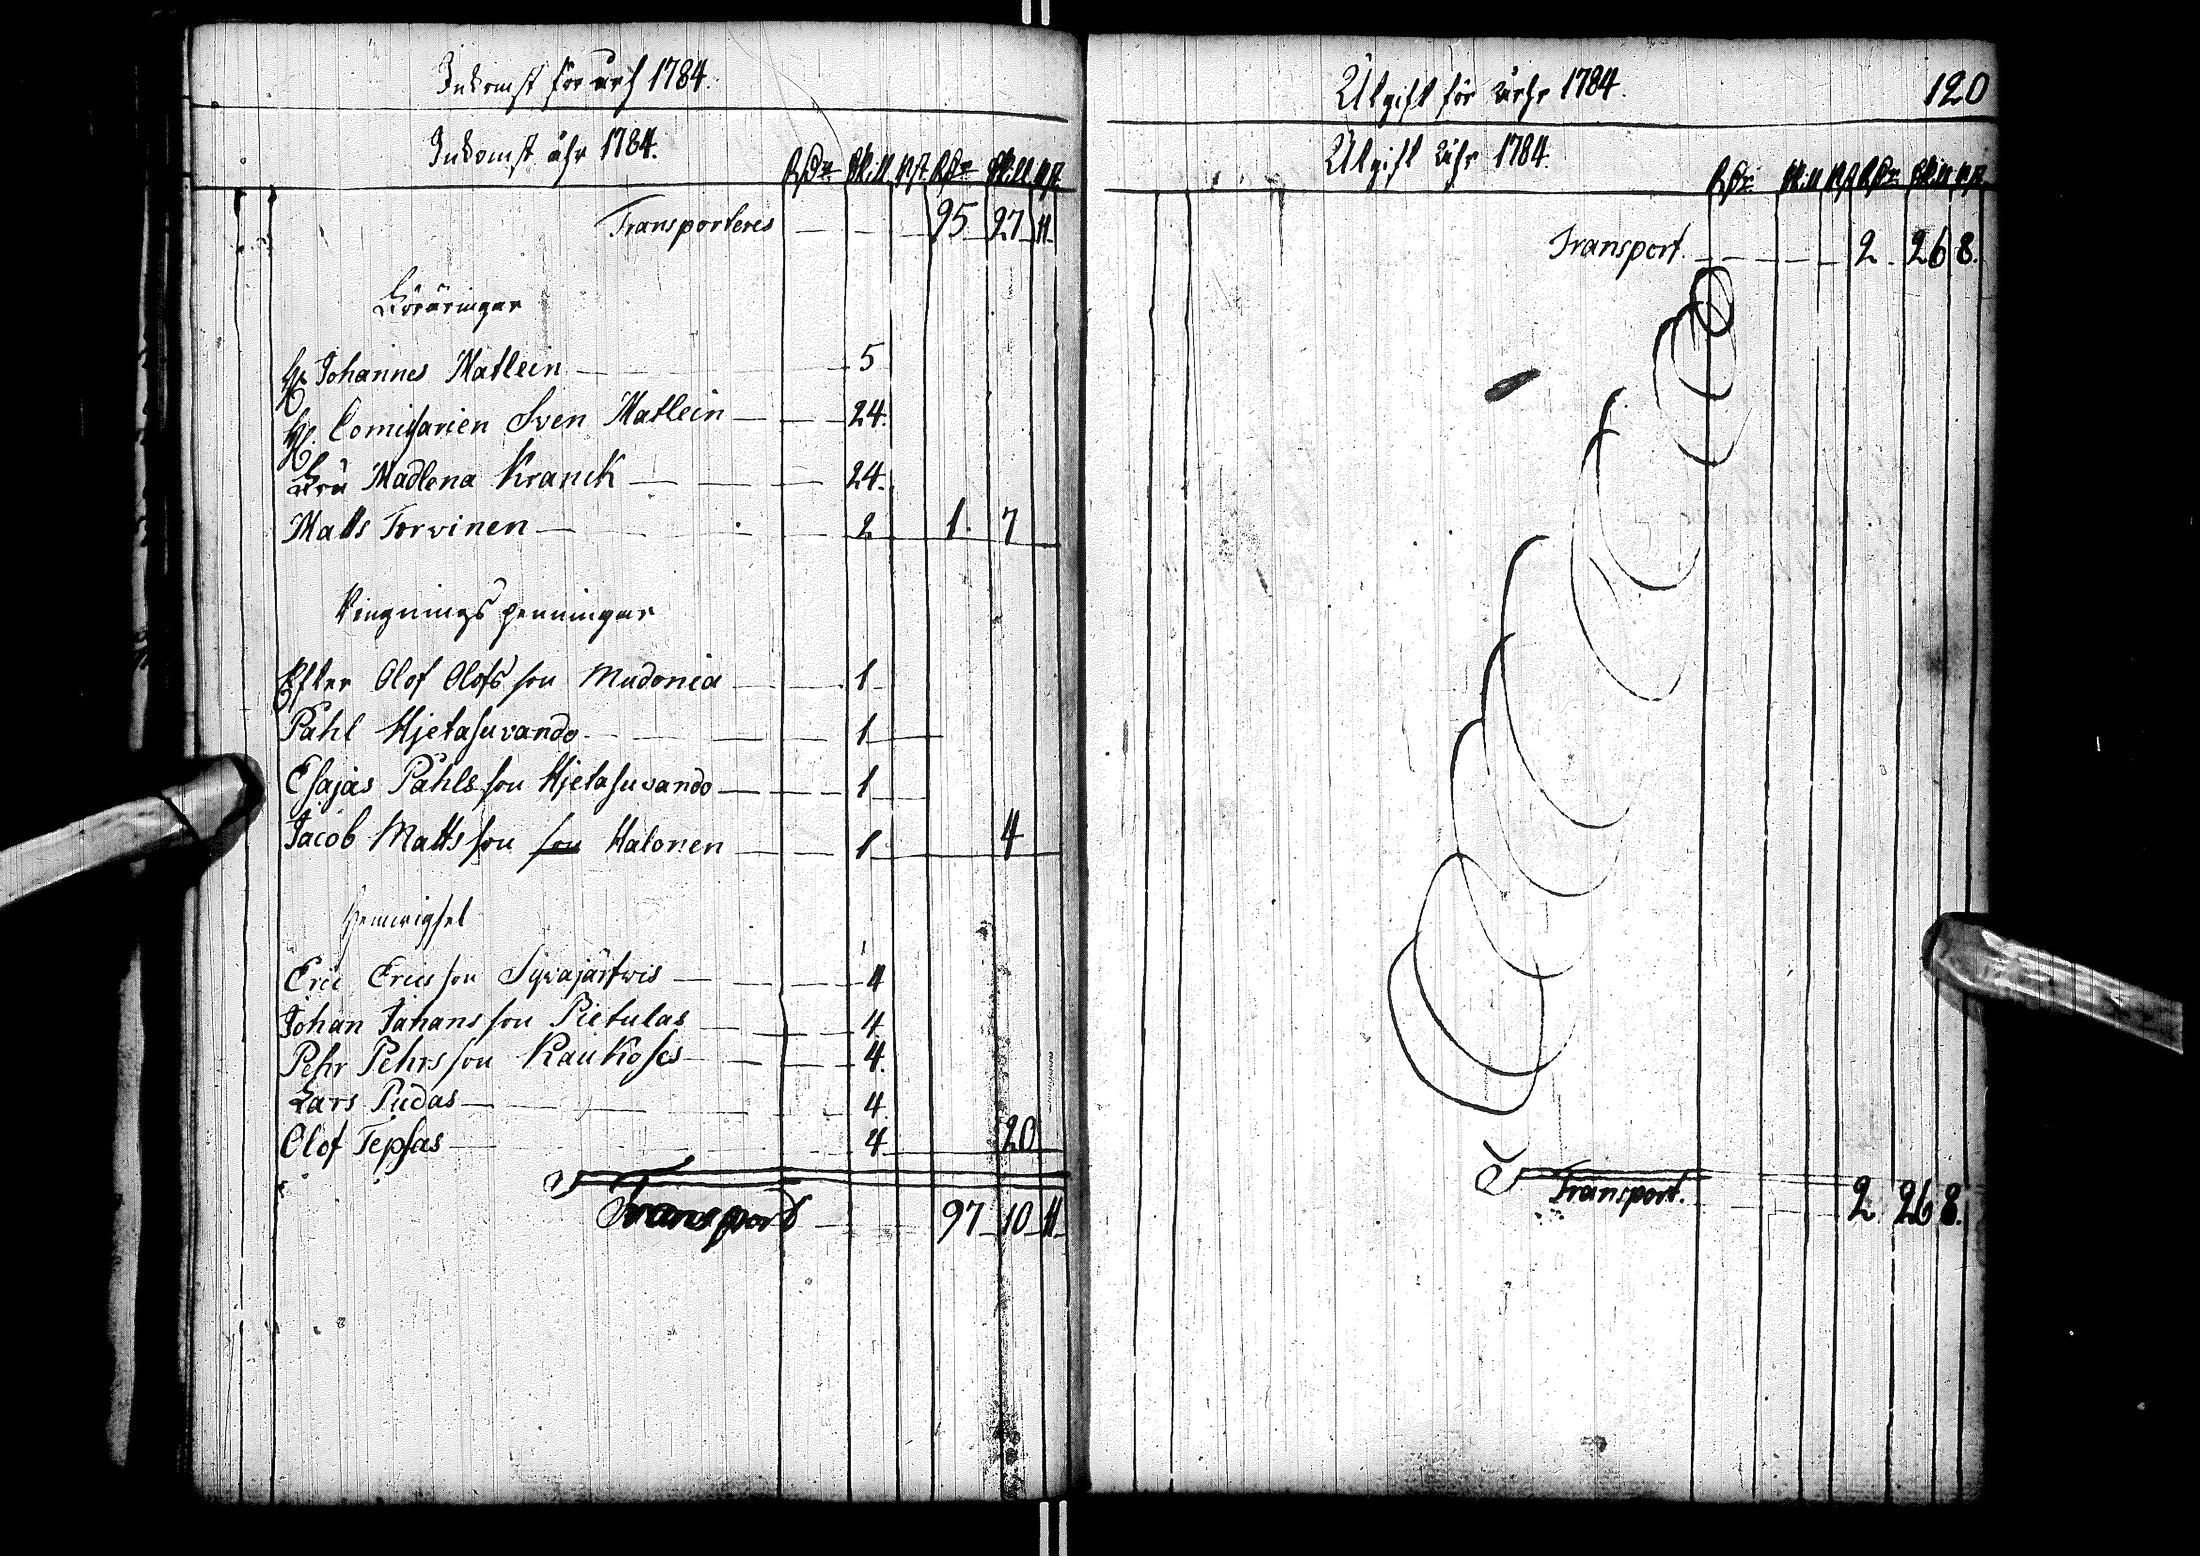 Inkomst för åhr 1784.
Inkomst åhr 1784.
RDr Skill. rst. RDr Skill. rst.
Transporteres 95 27 11.
Föräringar
Hr Johannes Matlein 5
Hr. Comisarien Sven Matlein 24.
Fru Madlena Kranck 24.
Matts Torvinen 2 1. 7
Ringnings penningar
Efter Olof Olofsson Mudonia 1
Påhl Hjetasuvando 1
Esajas Påhlsson Hjetasuvando 1
Jacob Mattsson son Halonen 1 4
Eric Ericsson Syvajärfwis 4
Johan Johansson Pietulas 4
Pehr Pehrsson Raukoses 4.
Lars Pudas 4
Olof Tepsas 4 20
Transport 97 10 11
Utgift för åhr 1784. 120
Utgift Åhr 1784.
RDr Skill rst RDr Skill rst.
Transport. 2 26 8.
Transport. 2 26 8.